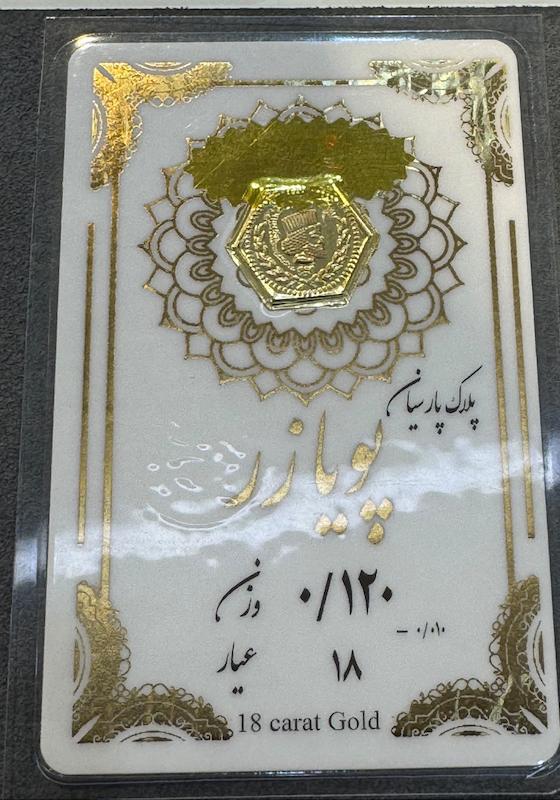 پلاک پارسیان
پویا زر
وزن ۰/۱۲۰
− ۰/۰۱۰
عیار ۱۸
18 carat Gold